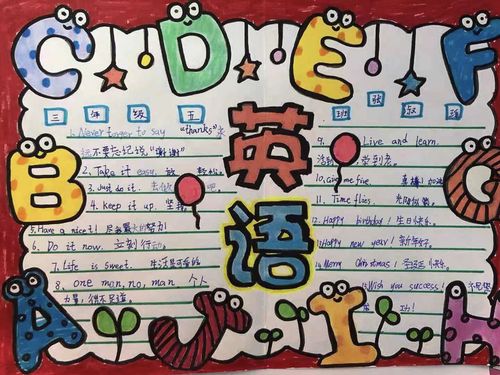 C D E F
三 年 级 五 班 张
1. Never forger to say "thanks"永
远不要忘记说"谢谢"
2. Take it easy. 放 轻松
3. Just do it. 吧
4. keep it up. 坚
5. Have a nice it!
6. Do it now. 立刻行
7. Life is sweet. 生活是
8. one man, no, man 个人
力量,得不足道。
英
语
9. Live and learn.
到老。
10. Give me five. 真棒!加
11. Time flies.
12. Happy birthday! 生日快乐。
13. Happy new year! 新年好。
14. Merry Christmas! 圣诞快乐。
15. Wish you success!
功!
B G
A J I H